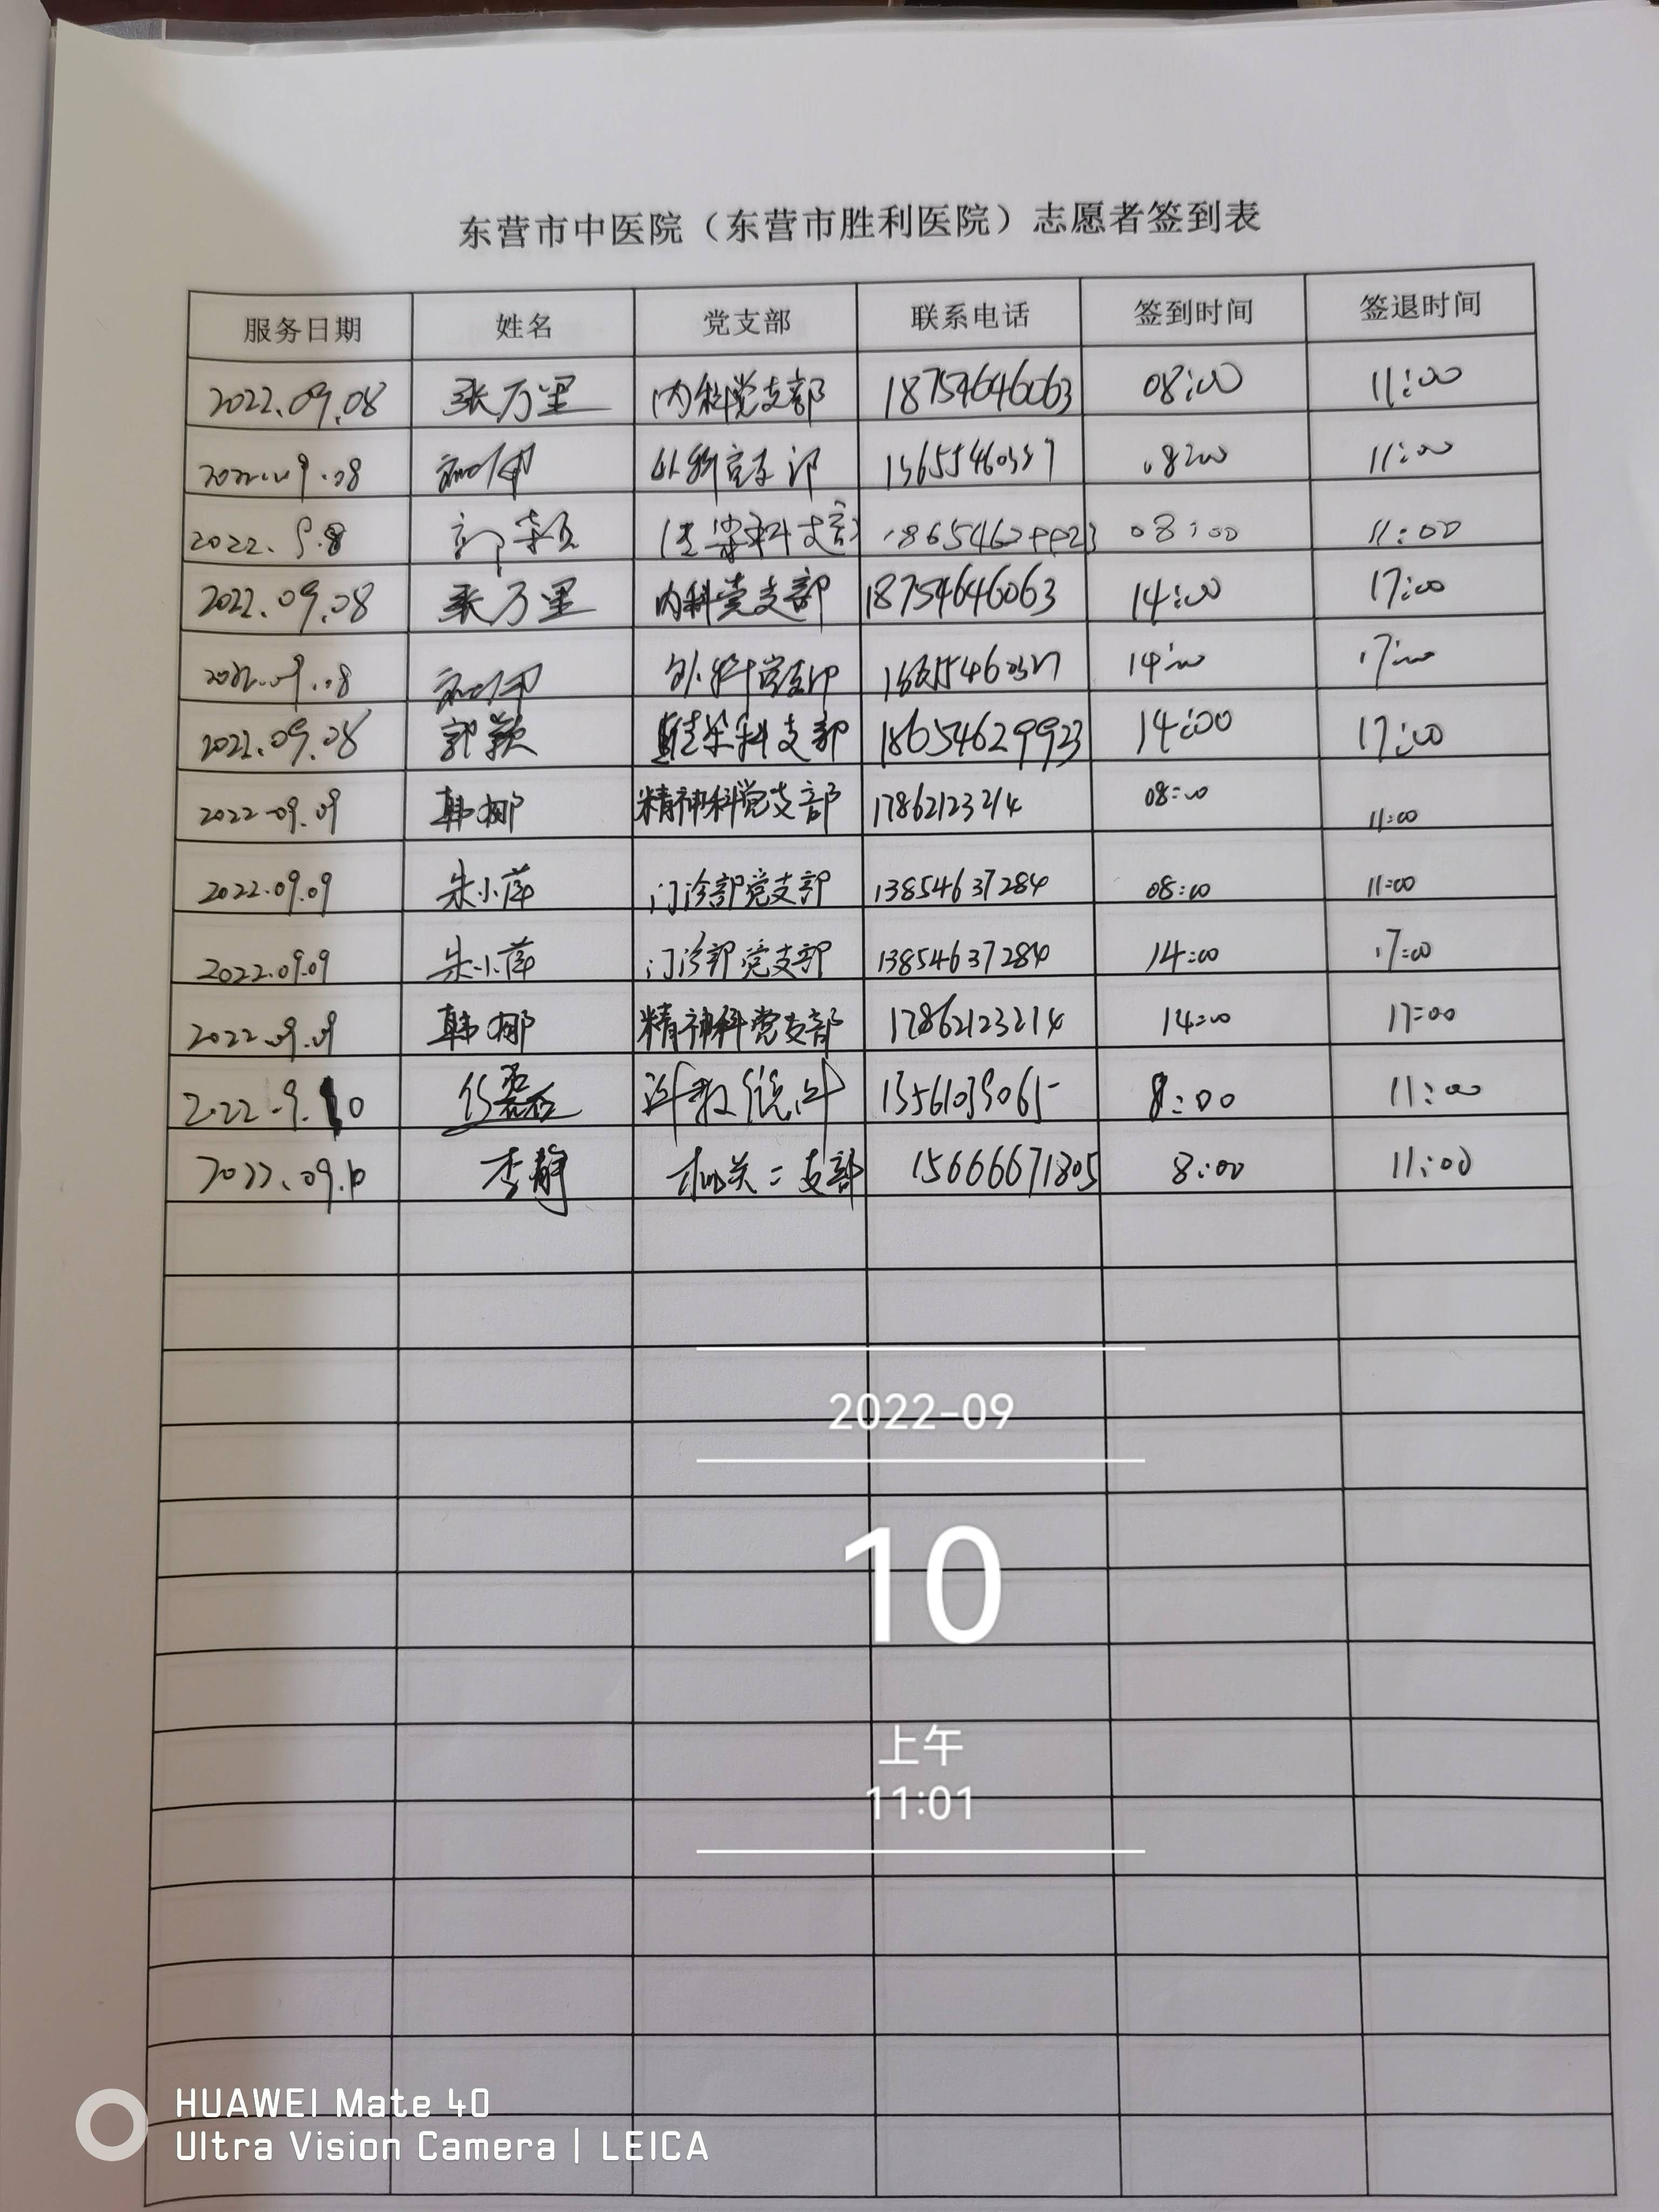 东营市中医院（东营市胜利医院）志愿者签到表
服务日期 姓名 党支部 联系电话 签到时间 签退时间
2022.09.08 张万里 内科党支部 18754646063 08:00 11:00
2022.09.08 外科党支部 08:00 11:00
2022.9.8 郭颖 科支部 08:00 11:00
2022.09.08 张万里 内科党支部 18754646063 14:00 17:00
2022.09.08 外科党支部 14:00 17:00
2022.09.08 郭颖 科支部 18654629923 14:00 17:00
2022.09.09 韩娜 精神科党支部 17862123214 08:00 11:00
2022.09.09 朱小萍 门诊部党支部 13854637284 08:00 11:00
2022.09.09 朱小萍 门诊部党支部 13854637284 14:00 17:00
2022.09.09 韩娜 精神科党支部 17862123214 14:00 17:00
2022.9.10 8:00 11:00
2022.09.10 李静 机关二支部 15666671805 8:00 11:00
2022-09
10
上午
11:01
HUAWEI Mate 40
Ultra Vision Camera | LEICA